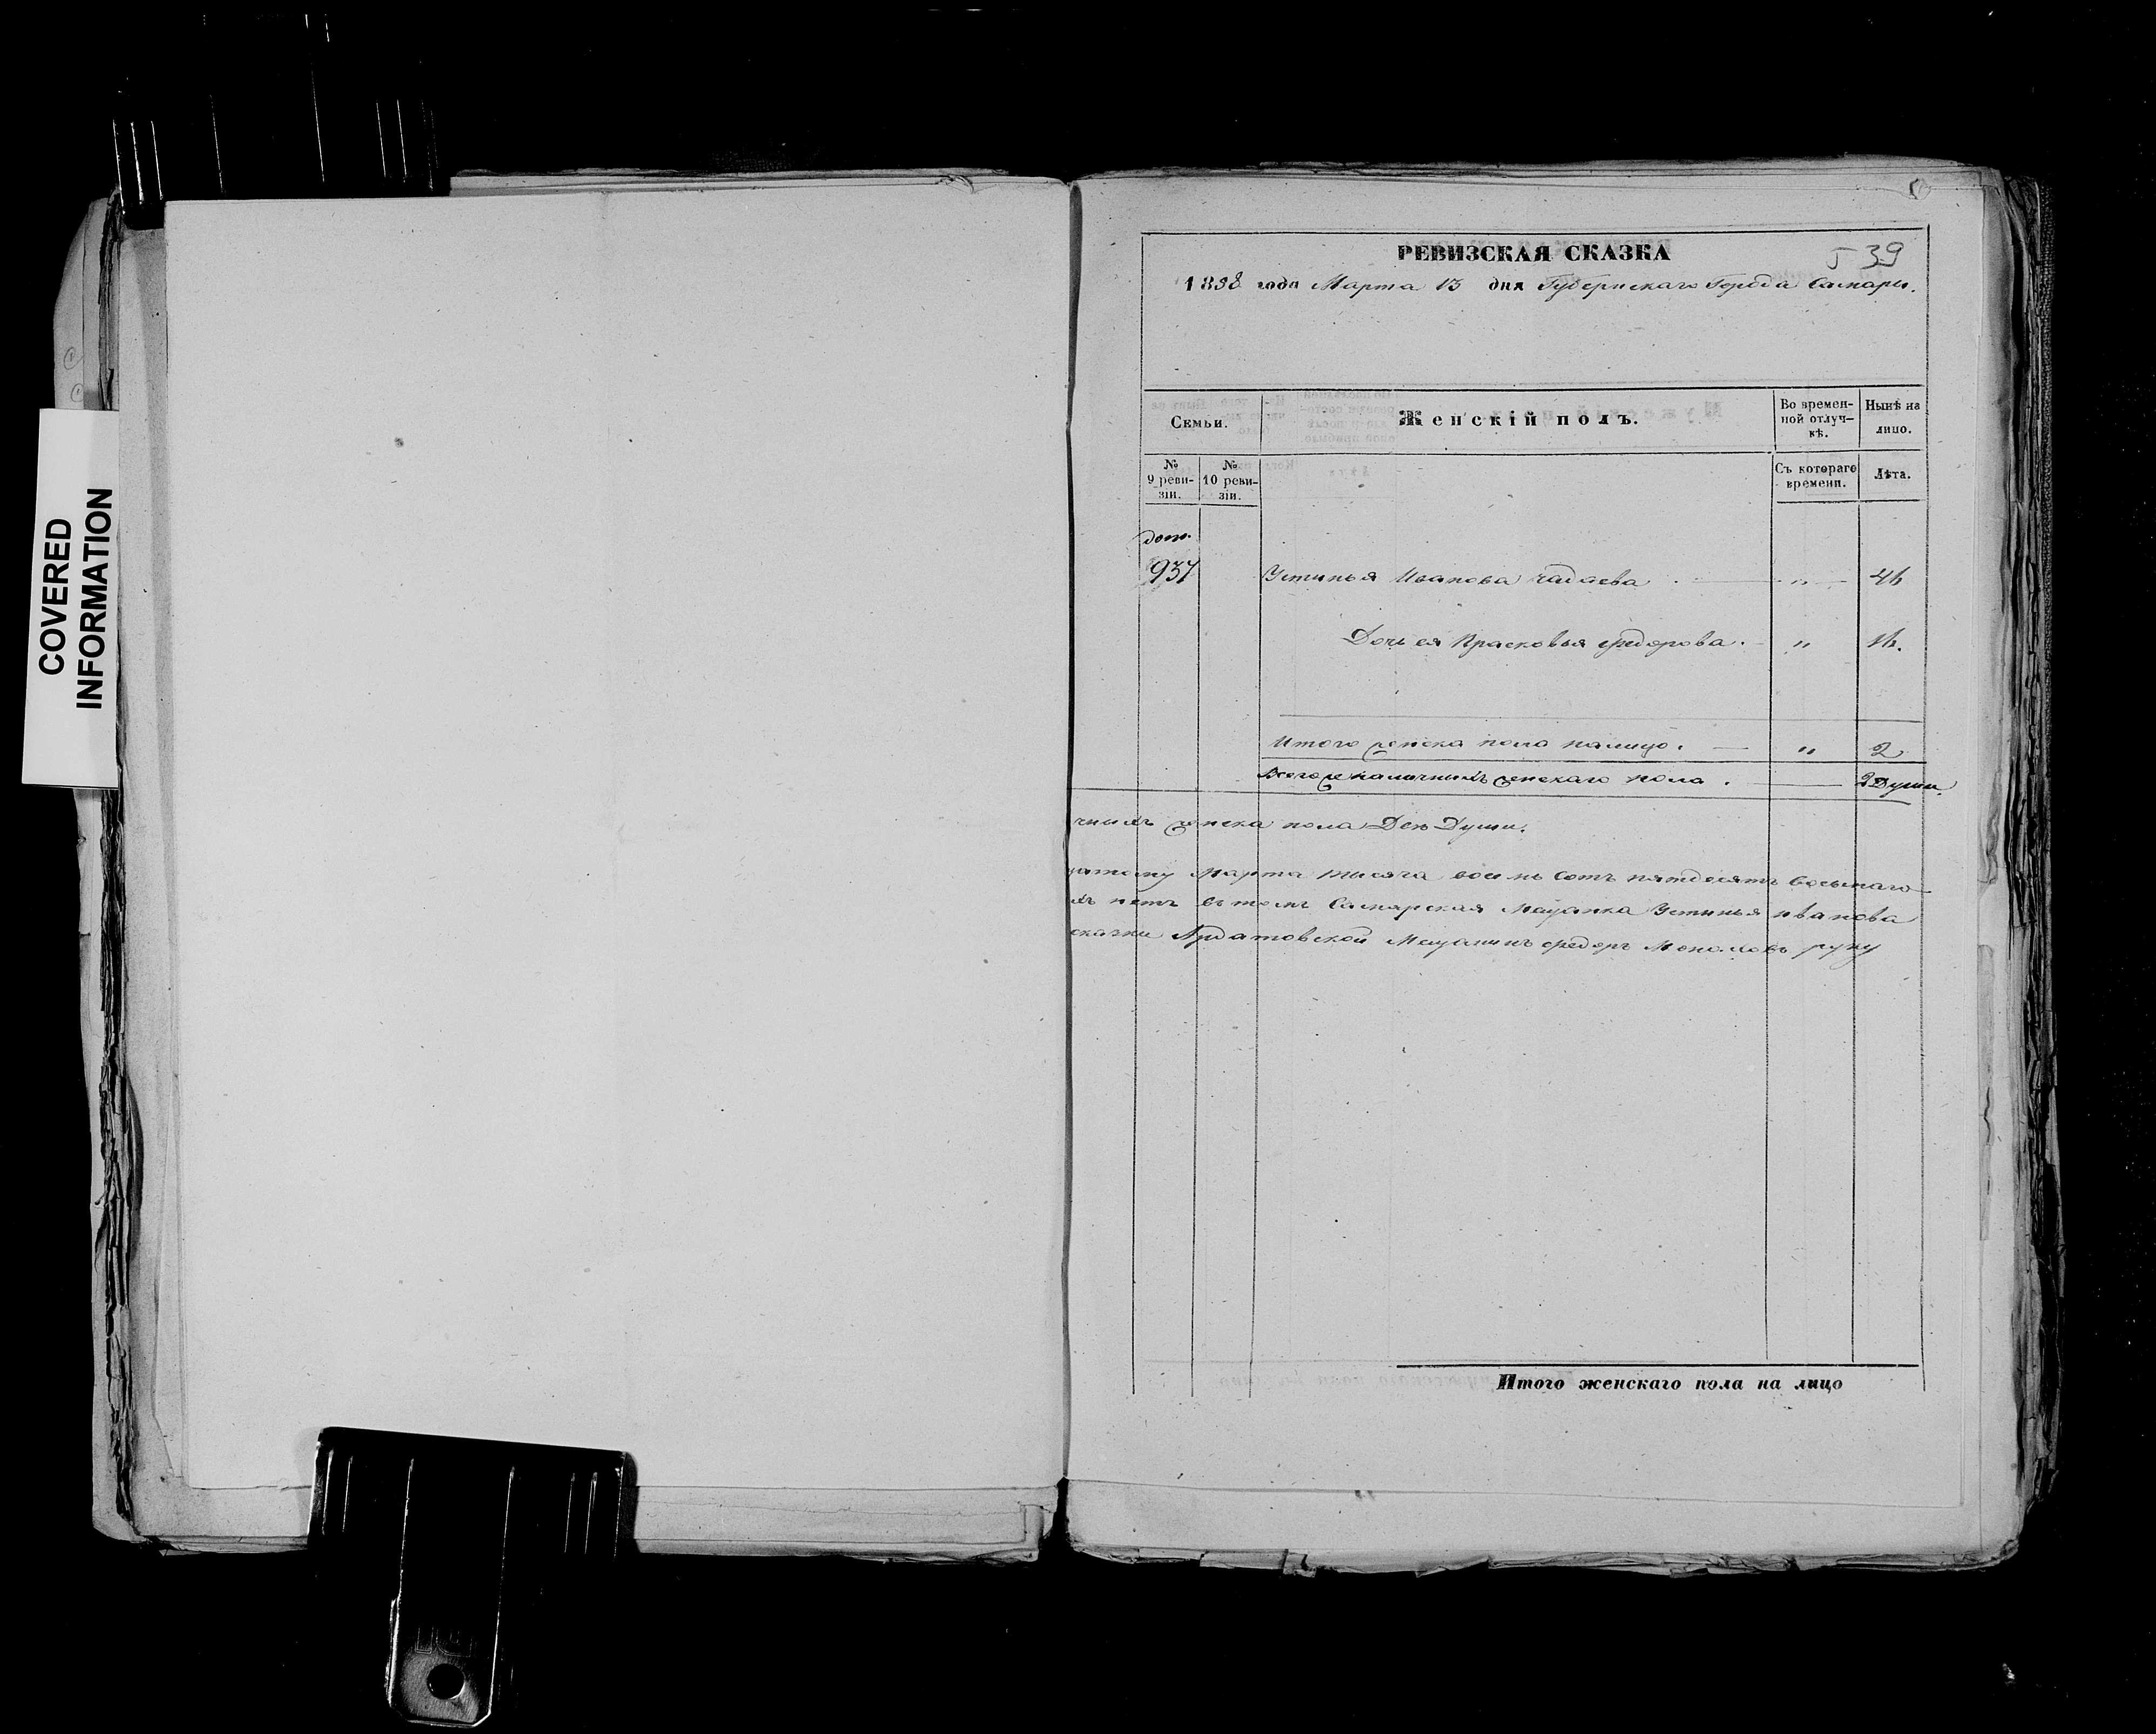 COVERED
INFORMATION
РЕВИЗСКАЯ СКАЗКА
539
1858 года Марта 13 дня Губернскаго Города Самары.
Семьи.
Женскiй полъ.
Во времен-
ной отлуч-
кѣ.
Нынѣ на
лицо.
№
9 реви-
зiи.
№
10 реви-
зiи.
Съ котораго
времени.
Лѣта.
доп.
937 Устинья Иванова Чадаева . „ 46
Дочь ея Прасковья Федорова. „ 16.
Итого женска пола налицо. — „ 2
Всего наличныхъ женскаго пола . 2 Души.
чныхъ женска пола Две Души.
цатому Марта тысяча восемь сотъ пятдесятъ восьмаго
хъ нетъ въ томъ Самарская Мещанка Устинья Иванова
сказки Ардатовской Мещанинъ Федоръ руку
Итого женскаго пола на лицо